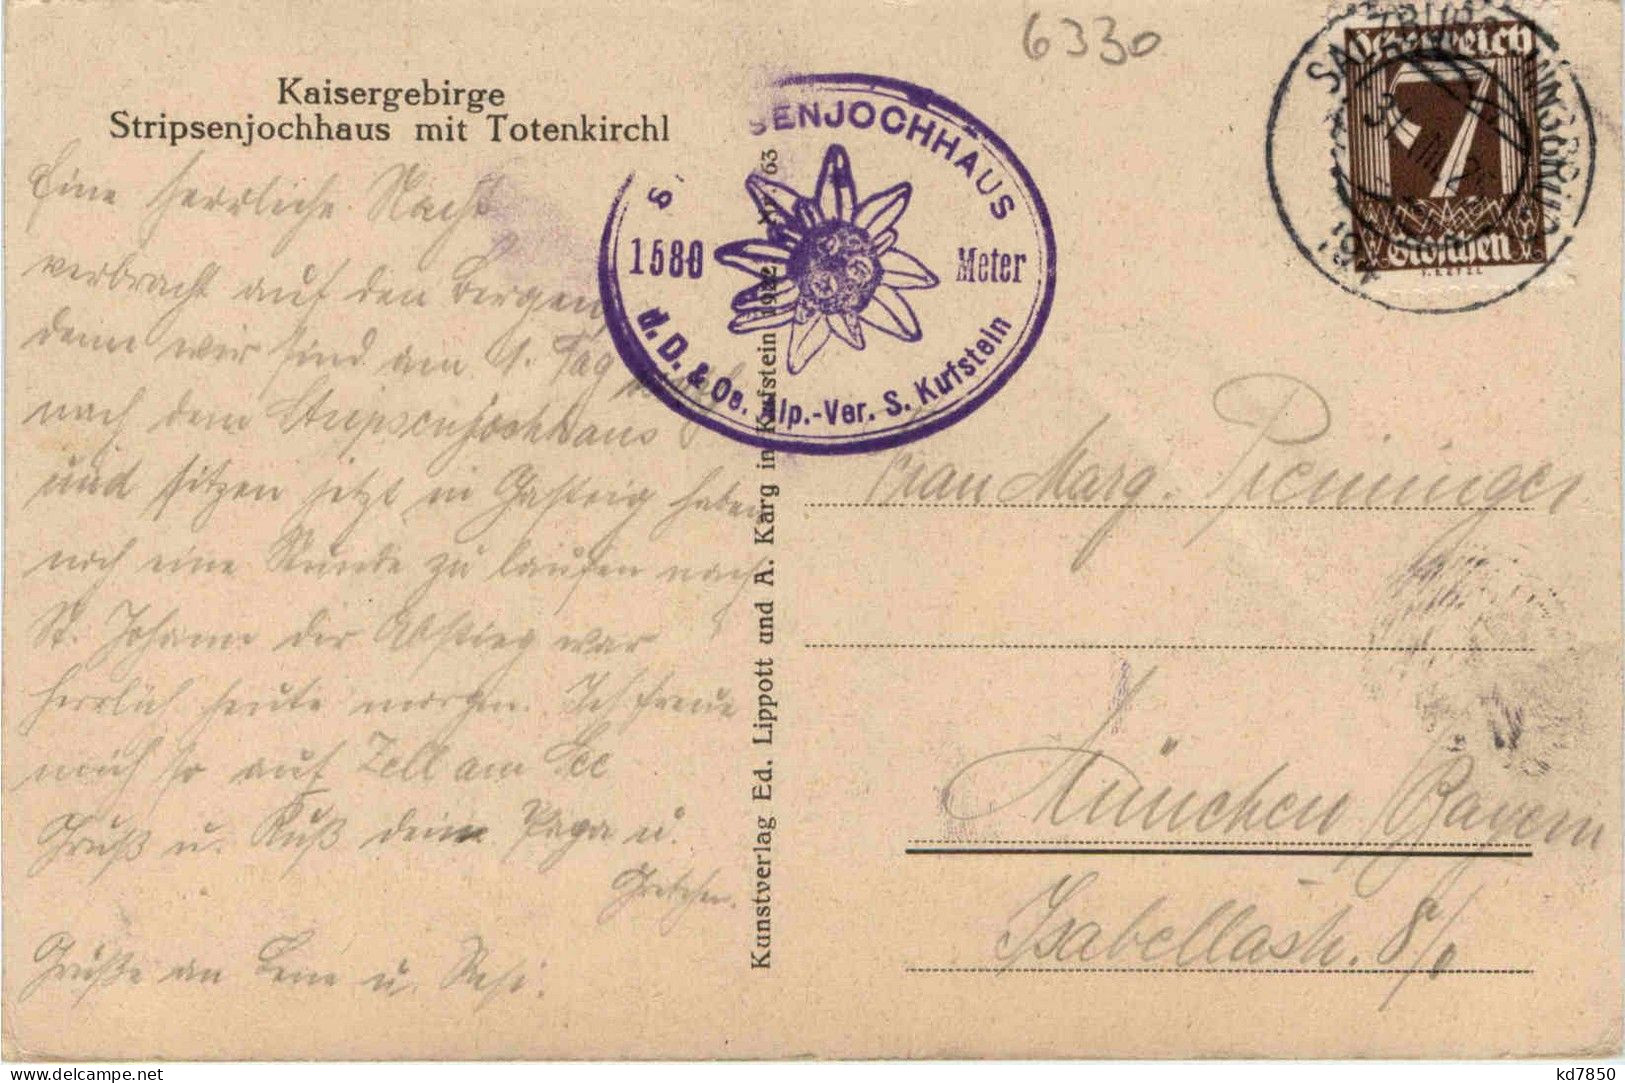 6330
Kaisergebirge
Stripsenjochhaus mit Totenkirchl
Eine herrliche Nacht
verbracht auf den Bergen,
denn wir sind am 1. Tag
noch
nach dem Stripsenjochhaus
und sitzen jetzt in Gasteig haben
noch eine Stunde zu laufen nach
St. Johann der Abstieg war
herrlich heute morgen. Ich freue
mich so auf Zell am See
Gruß u. Kuß dein Papa u.
Gretchen.
Grüße an Leni u. Resi.
SENJOCHHAUS
1580 Meter
d. D. & Oe. Alp.-Ver. S. Kufstein
Kunstverlag Ed. Lippott und A. Karg in Kufstein 1922 63
SALZBURG INNSBRUCK
31
Österreich
7
Groschen
Frau Marg. Preininger
München, Bayern
Isabellastr. 8/0
kd7850